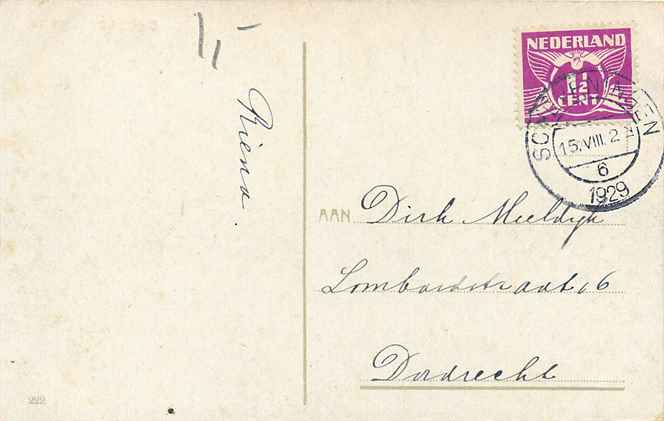 1,-
Riena.
NEDERLAND
1½
CENT
15.VIII.2
6
1929
AAN Dirk Meeldijk
Lombardstraat 06
Dordrecht
999